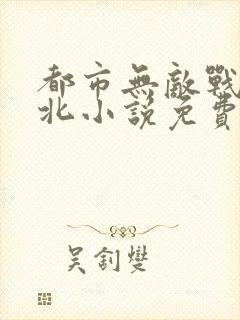 都市無敵戰
北小說免費
吳釗燮